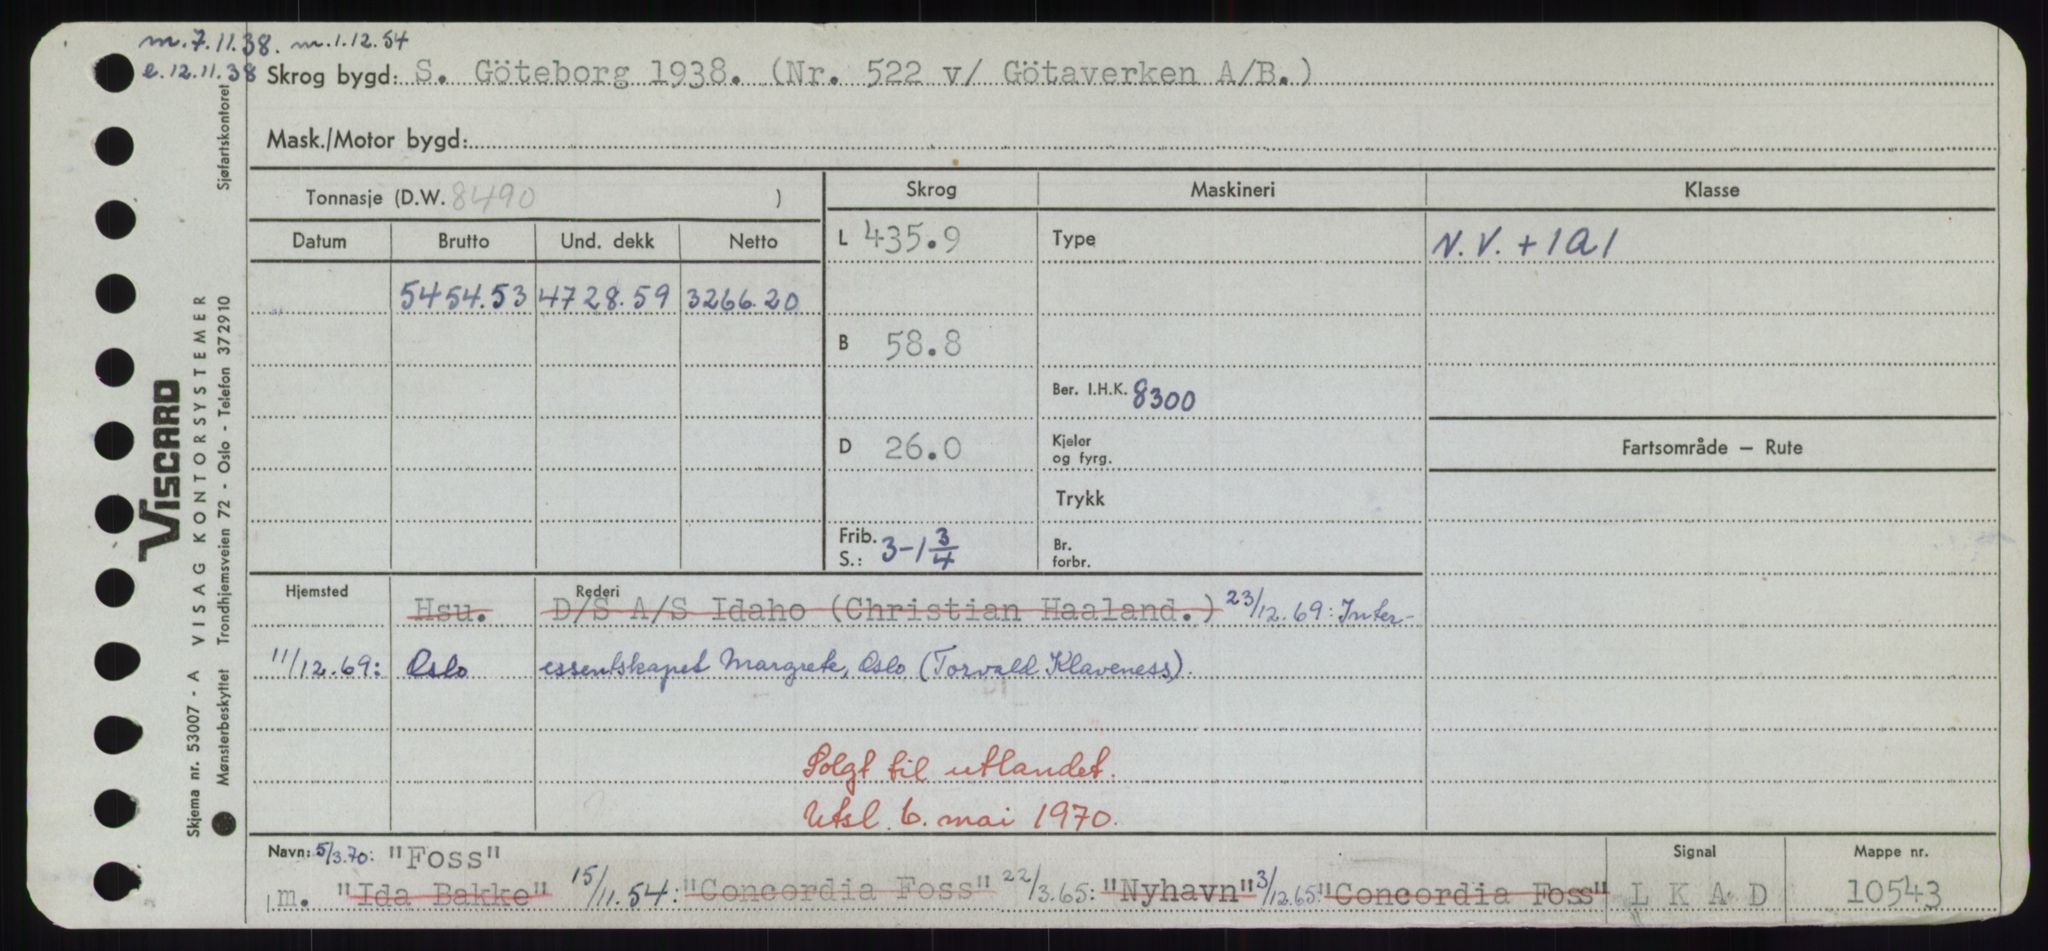 m.7.11.38. m.1.12.54
e.12.11.38 Skrog bygd: S. Göteborg 1938. (Nr. 522 v/ Götaverken A/B.)
Mask./Motor bygd:
Tonnasje (D.W. 8490 )
Skrog Maskineri Klasse
Datum Brutto Und. dekk Netto
L 435.9 Type N.V. + 1A1
5454.53 4728.59 3266.20
B 58.8
Ber. I.H.K. 8300
D 26.0 Kjeler og fyrg. Fartsområde — Rute
Trykk
Frib. S.: 3-1 3/4 Br. forbr.
Hjemsted Rederi
Hsu. D/S A/S Idaho (Christian Haaland.) 23/12.69: Inter-
11/12.69: Oslo essentskapet Margrete, Oslo (Torvald Klaveness).
Solgt til utlandet.
Utsl. 6. mai 1970.
Navn: 5/3.70: "Foss" Signal Mappe nr.
m. "Ida Bakke" 15/11.54: "Concordia Foss" 22/3.65: "Nyhavn" 3/12.65: "Concordia Foss" L K A D 10543
Skjema nr. 53007 - A VISAG KONTORSYSTEMER
Mønsterbeskyttet Trondhjemsveien 72 - Oslo - Telefon 372910 Sjøfartskontoret
VISCARD